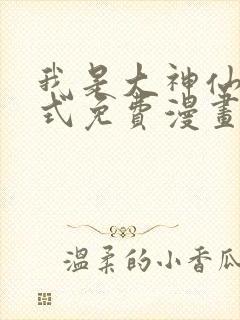 我是大神仙
式免费漫畫
温柔的小香瓜